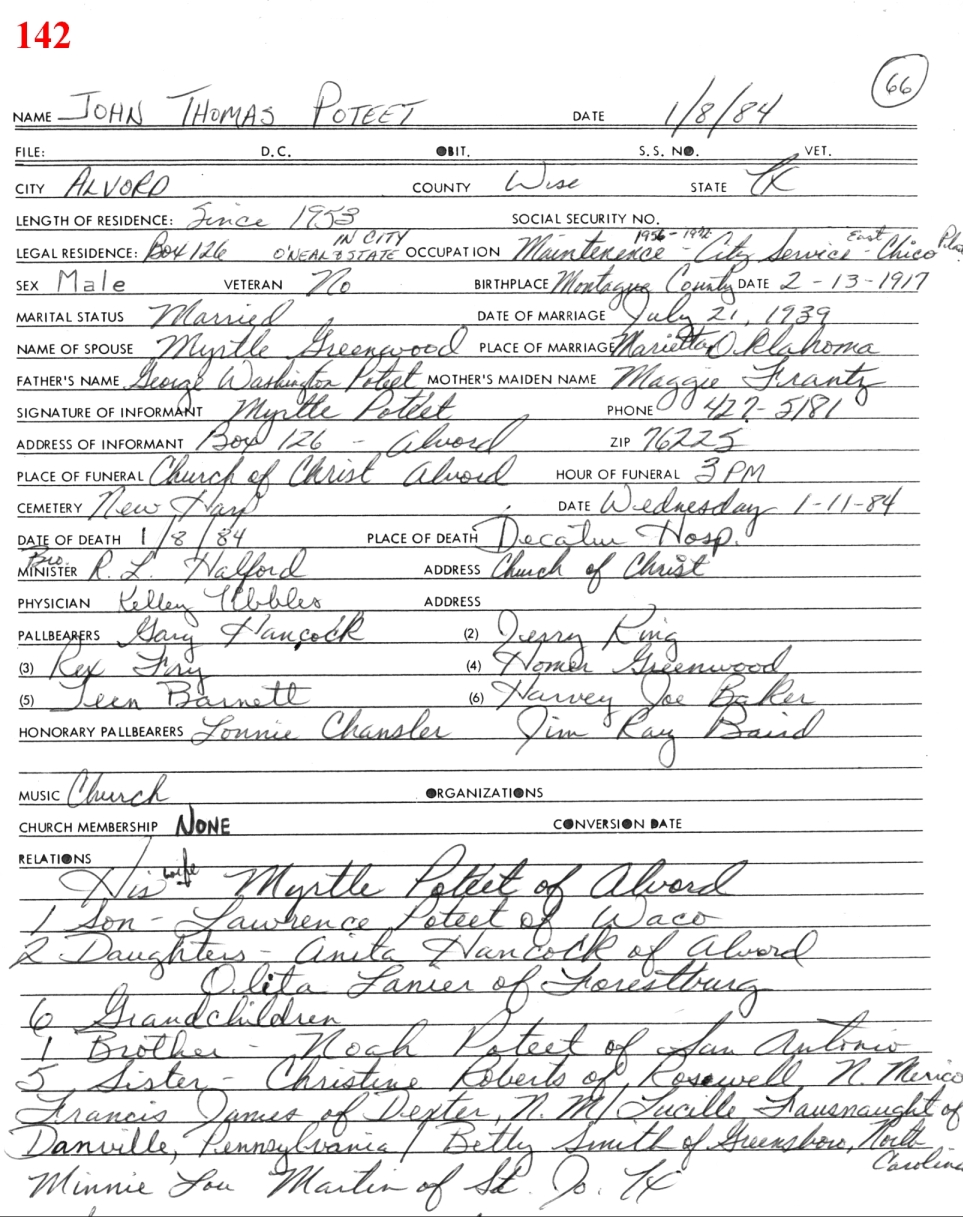 142
66
NAME JOHN THOMAS POTEET DATE 1/8/84
FILE: D.C. OBIT. S.S. NO. VET.
CITY ALVORD COUNTY Wise STATE TX
LENGTH OF RESIDENCE: Since 1953 SOCIAL SECURITY NO.
IN CITY 1956-1972 East
LEGAL RESIDENCE: Box 126 O'NEAL & STATE OCCUPATION Maintenence - City Service - Chico
SEX Male VETERAN No BIRTHPLACE Montague County DATE 2-13-1917
MARITAL STATUS Married DATE OF MARRIAGE July 21, 1939
NAME OF SPOUSE Myrtle Greenwood PLACE OF MARRIAGE Marietta Oklahoma
FATHER'S NAME George Washington Poteet MOTHER'S MAIDEN NAME Maggie Frantz
SIGNATURE OF INFORMANT Myrtle Poteet PHONE 427-5181
ADDRESS OF INFORMANT Box 126 - Alvord ZIP 76225
PLACE OF FUNERAL Church of Christ Alvord HOUR OF FUNERAL 3 PM
CEMETERY New Harp DATE Wednesday 1-11-84
DATE OF DEATH 1/8/84 PLACE OF DEATH Decatur Hosp.
Bro.
MINISTER R. L. Halford ADDRESS Church of Christ
PHYSICIAN Kelley ADDRESS
PALLBEARERS Gary Hancock (2) Jerry King
(3) Rex Fry (4) Homer Greenwood
(5) Teen Barnett (6) Harvey Joe Baker
HONORARY PALLBEARERS Lonnie Chansler Jim Ray Baird
MUSIC Church ORGANIZATIONS
CHURCH MEMBERSHIP NONE CONVERSION DATE
RELATIONS
His wife Myrtle Poteet of Alvord
1 Son - Lawrence Poteet of Waco
2 Daughters - Anita Hancock of Alvord
Olita Lanier of Forestburg
6 Grandchildren
1 Brother - Noah Poteet of San Antonio
5 Sister - Christine Roberts of Rosewell, N. Mexico
Francis James of Dexter, N. M / Lucille Fausnaught of
Danville, Pennsylvania / Betty Smith of Greensboro, North
Carolina
Minnie Lou Martin of St. Jo. TX